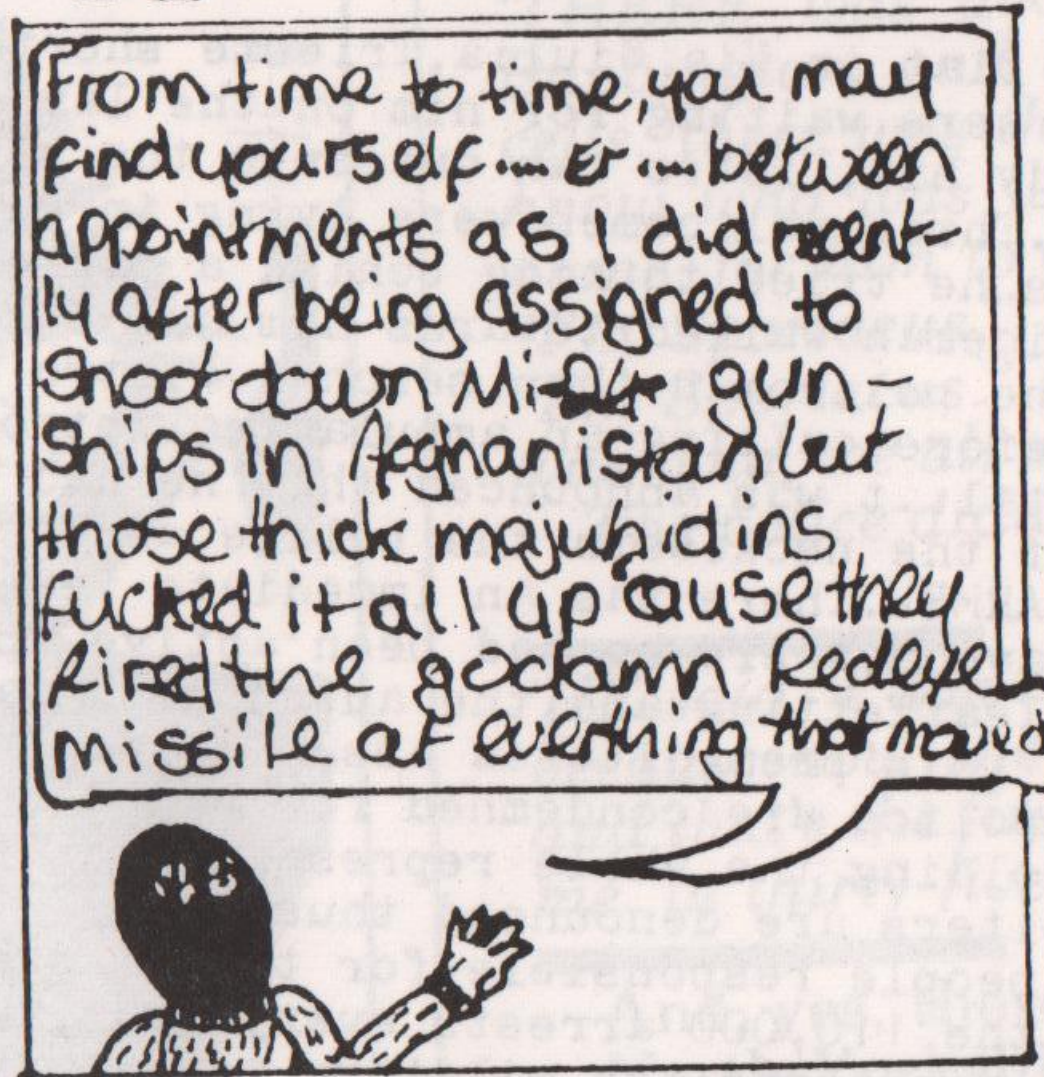 From time to time, you may
find yourself .... Er .... between
appointments as I did recent-
ly after being assigned to
shoot down Mi-24 gun-
ships in Afghanistan but
those thick majuhidins
fucked it all up 'cause they
fired the godamn Redeye
missile at everthing that moved